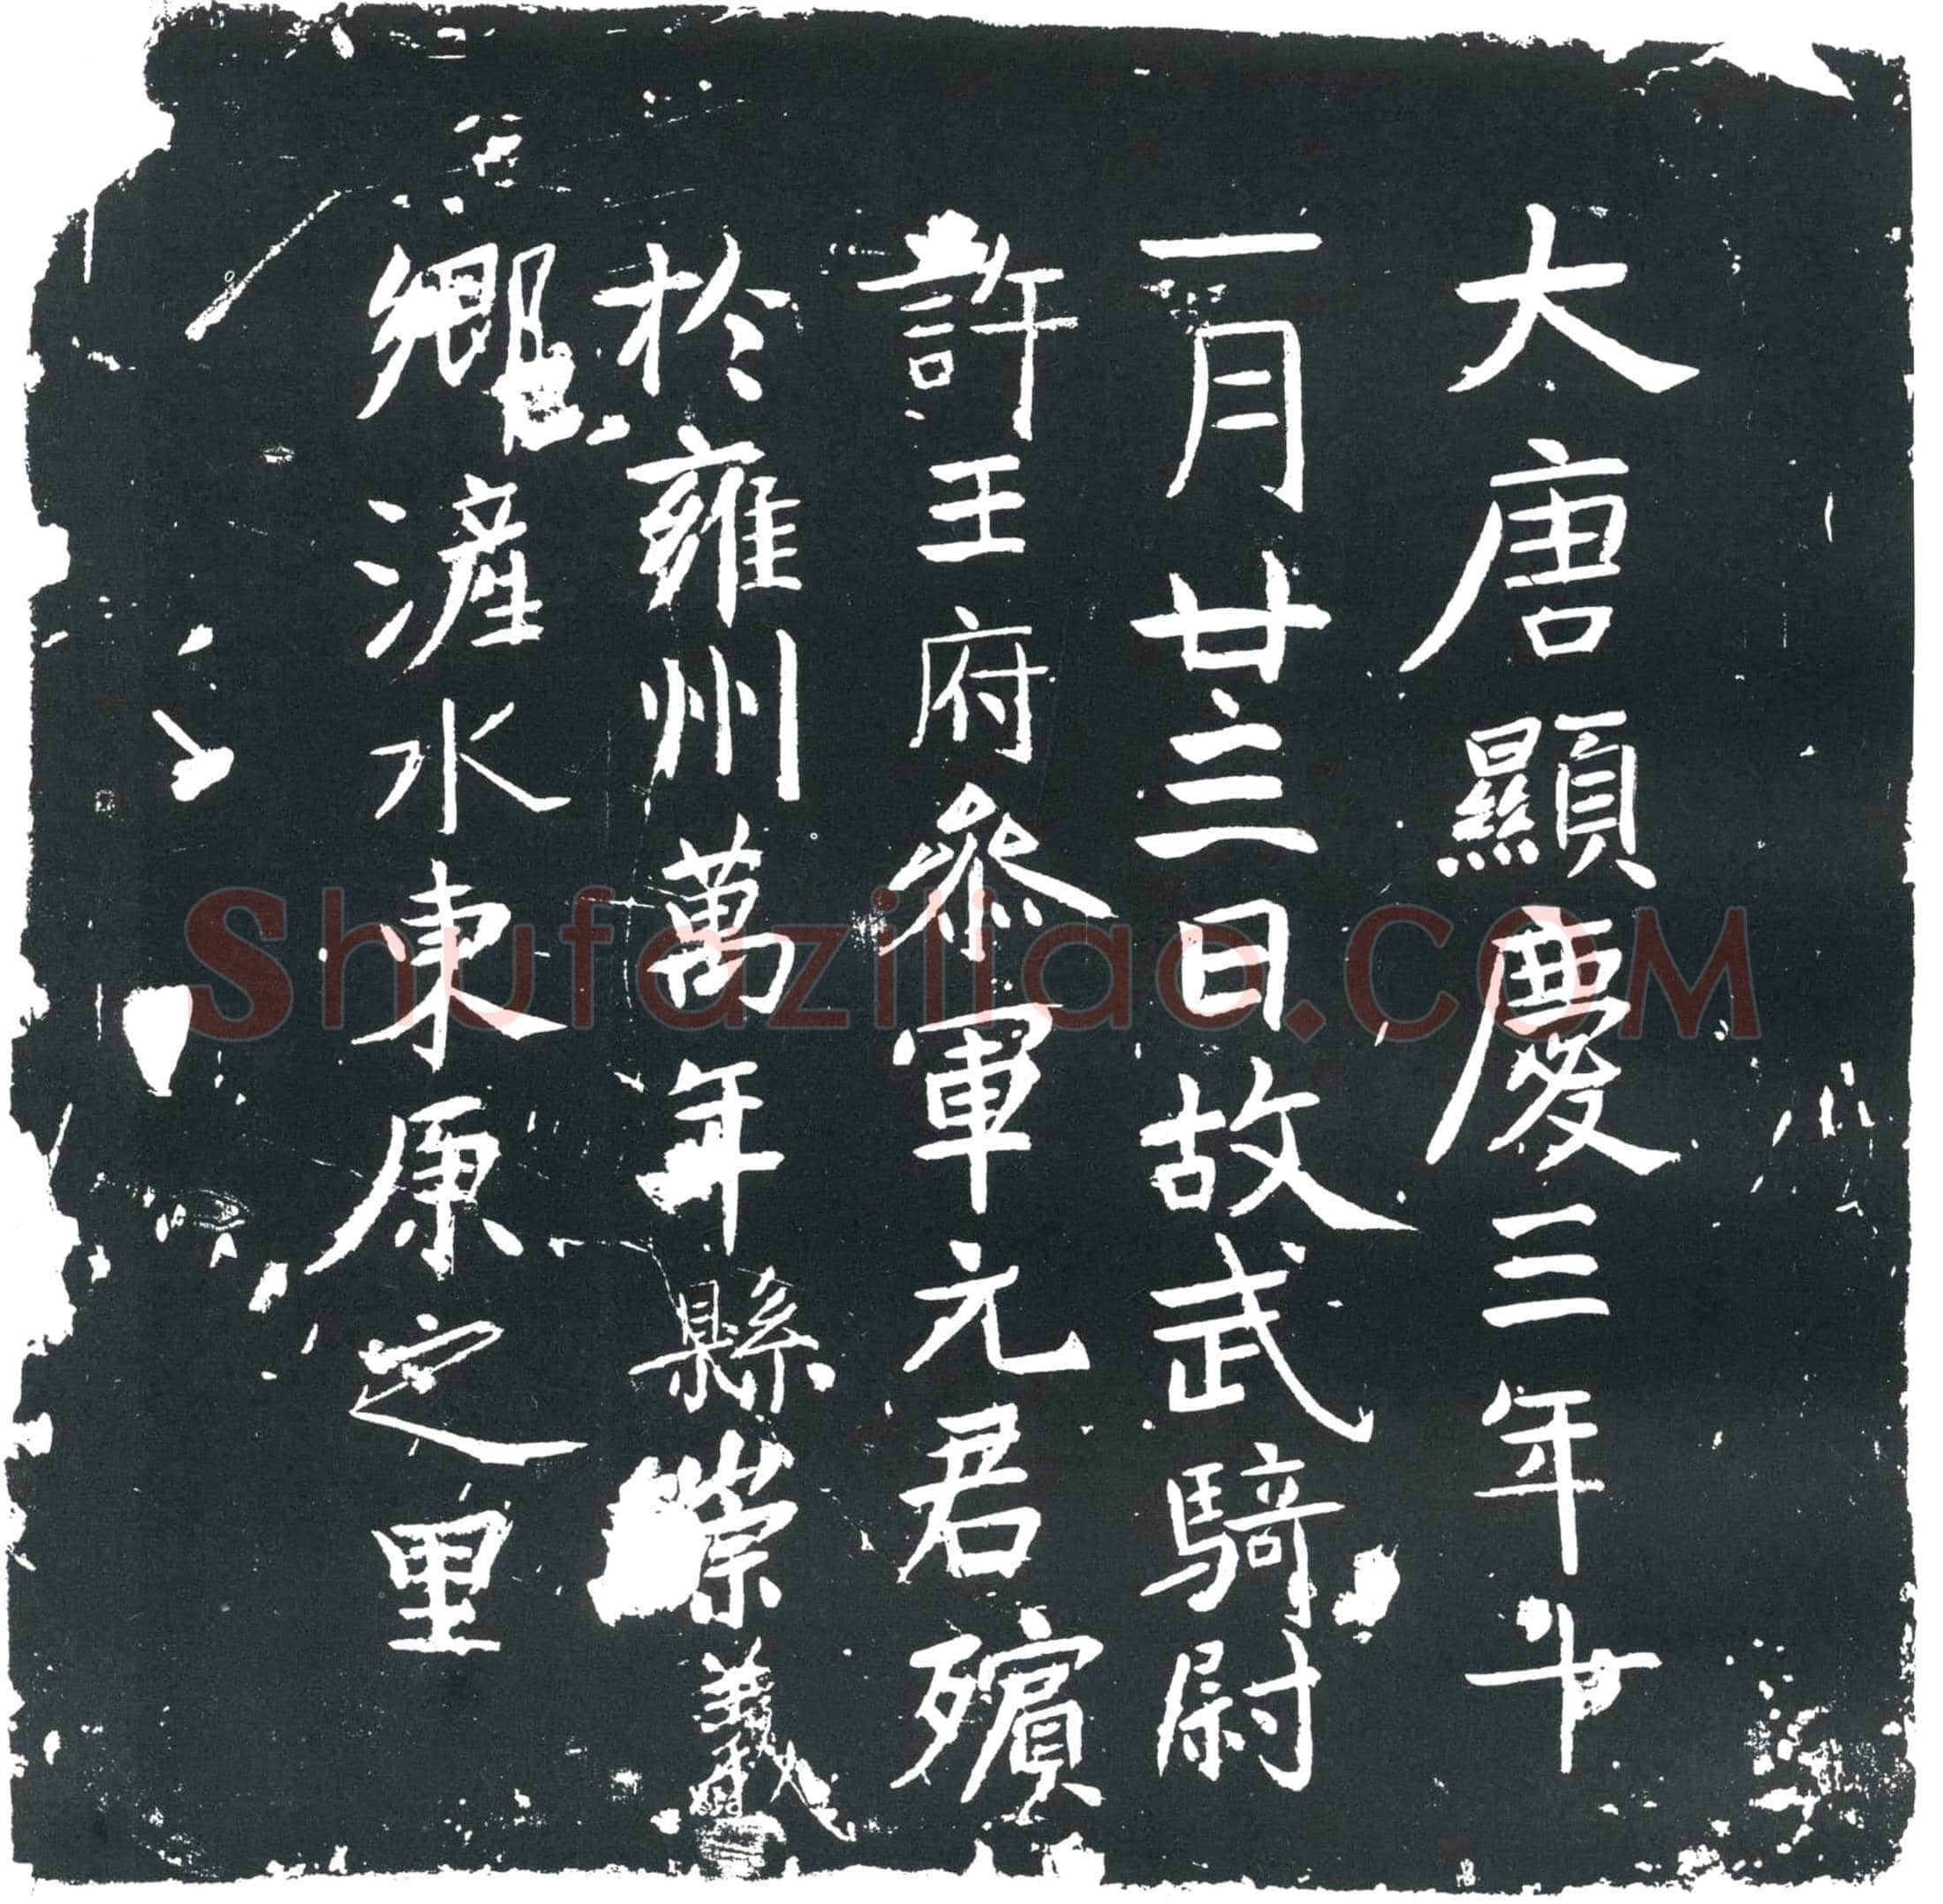 大唐顯慶三年十
一月廿三日故武騎尉
許王府參軍元君殯
於雍州萬年縣崇義
鄉滻水東原之里
Shufaziliao.COM